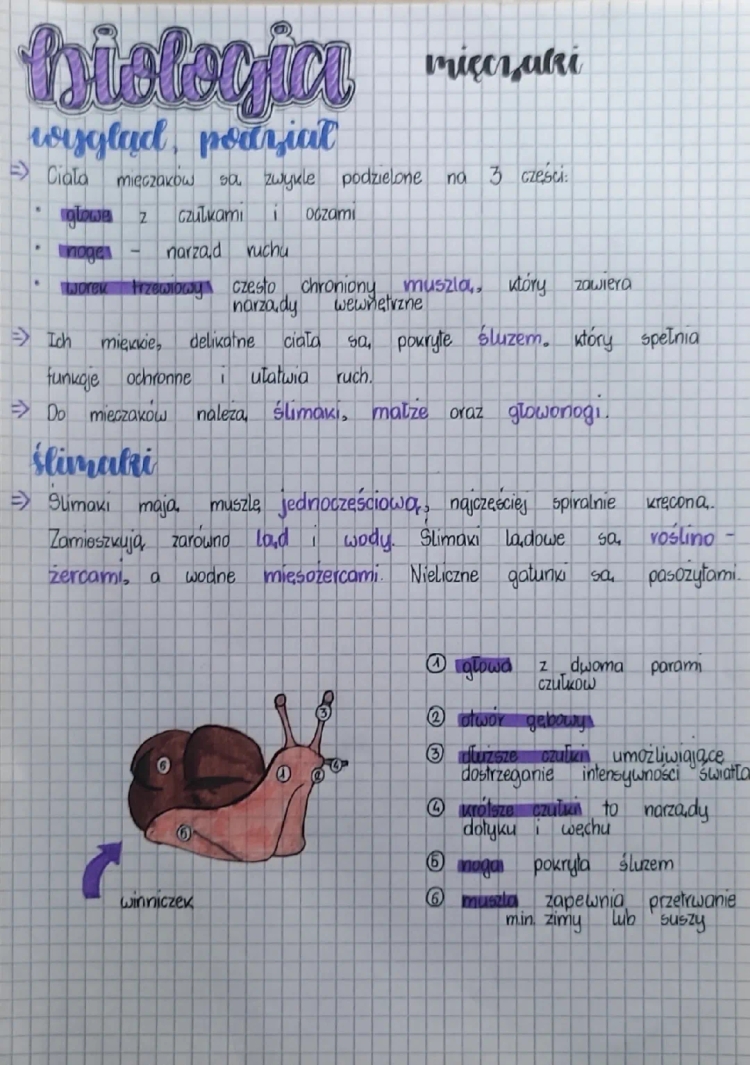 biologia
mięczaki
wygląd, podział
⇒ Ciała mięczaków są zwykle podzielone na 3 części:
• głowę z czułkami i oczami
• nogę – narząd ruchu
• worek trzewiowy często chroniony muszlą, który zawiera
narządy wewnętrzne
⇒ Ich miękkie, delikatne ciała są pokryte śluzem, który spełnia
funkcje ochronne i ułatwia ruch.
⇒ Do mięczaków należą ślimaki, małże oraz głowonogi.
ślimaki
⇒ Ślimaki mają muszlę jednoczęściową, najczęściej spiralnie kręconą.
Zamieszkują zarówno ląd i wody. Ślimaki lądowe są roślino -
żercami, a wodne mięsożercami. Nieliczne gatunki są pasożytami.
① głowa z dwoma parami
czułków
② otwór gębowy
③ dłuższe czułki umożliwiające
dostrzeganie intensywności światła
④ krótsze czułki to narządy
dotyku i węchu
⑤ noga pokryta śluzem
⑥ muszla zapewnia przetrwanie
min. zimy lub suszy
③
⑥ ① ② ④
⑤
winniczek